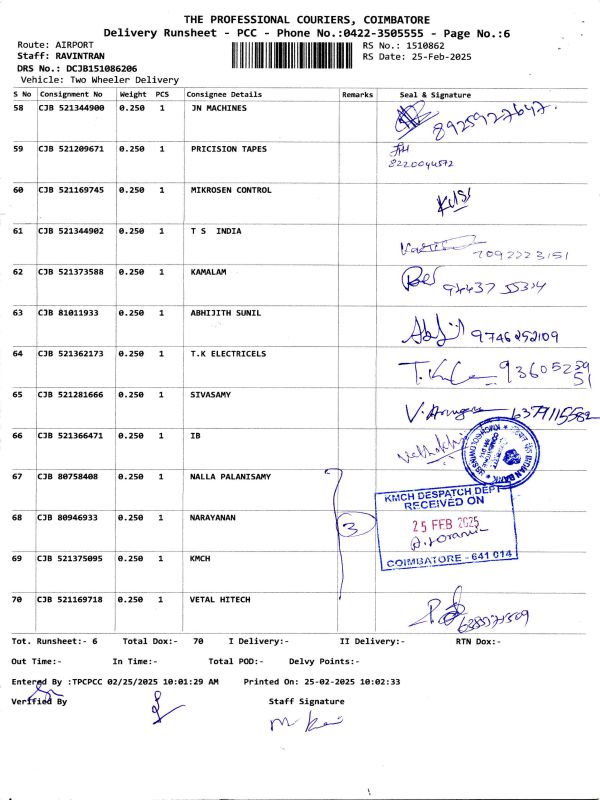 THE PROFESSIONAL COURIERS, COIMBATORE
Delivery Runsheet - PCC - Phone No.:0422-3505555 - Page No.:6
Route: AIRPORT RS No.: 1510862
Staff: RAVINTRAN RS Date: 25-Feb-2025
DRS No.: DCJB151086206
Vehicle: Two Wheeler Delivery
S No Consignment No Weight PCS Consignee Details Remarks Seal & Signature
58 CJB 521344900 0.250 1 JN MACHINES 8925927647.
59 CJB 521209671 0.250 1 PRICISION TAPES
8220044572
60 CJB 521169745 0.250 1 MIKROSEN CONTROL
61 CJB 521344902 0.250 1 T S INDIA 7092223151
62 CJB 521373588 0.250 1 KAMALAM
63 CJB 81011933 0.250 1 ABHIJITH SUNIL 9746252109
64 CJB 521362173 0.250 1 T.K ELECTRICELS
65 CJB 521281666 0.250 1 SIVASAMY 6379115582
66 CJB 521366471 0.250 1 IB
INDIAN BANK
67 CJB 80758408 0.250 1 NALLA PALANISAMY
KMCH DESPATCH DEPT
RECEIVED ON
68 CJB 80946933 0.250 1 NARAYANAN 3 25 FEB 2025
69 CJB 521375095 0.250 1 KMCH COIMBATORE - 641 014
70 CJB 521169718 0.250 1 VETAL HITECH
Tot. Runsheet:- 6 Total Dox:- 70 I Delivery:- II Delivery:- RTN Dox:-
Out Time:- In Time:- Total POD:- Delvy Points:-
Entered By :TPCPCC 02/25/2025 10:01:29 AM Printed On: 25-02-2025 10:02:33
Verified By Staff Signature